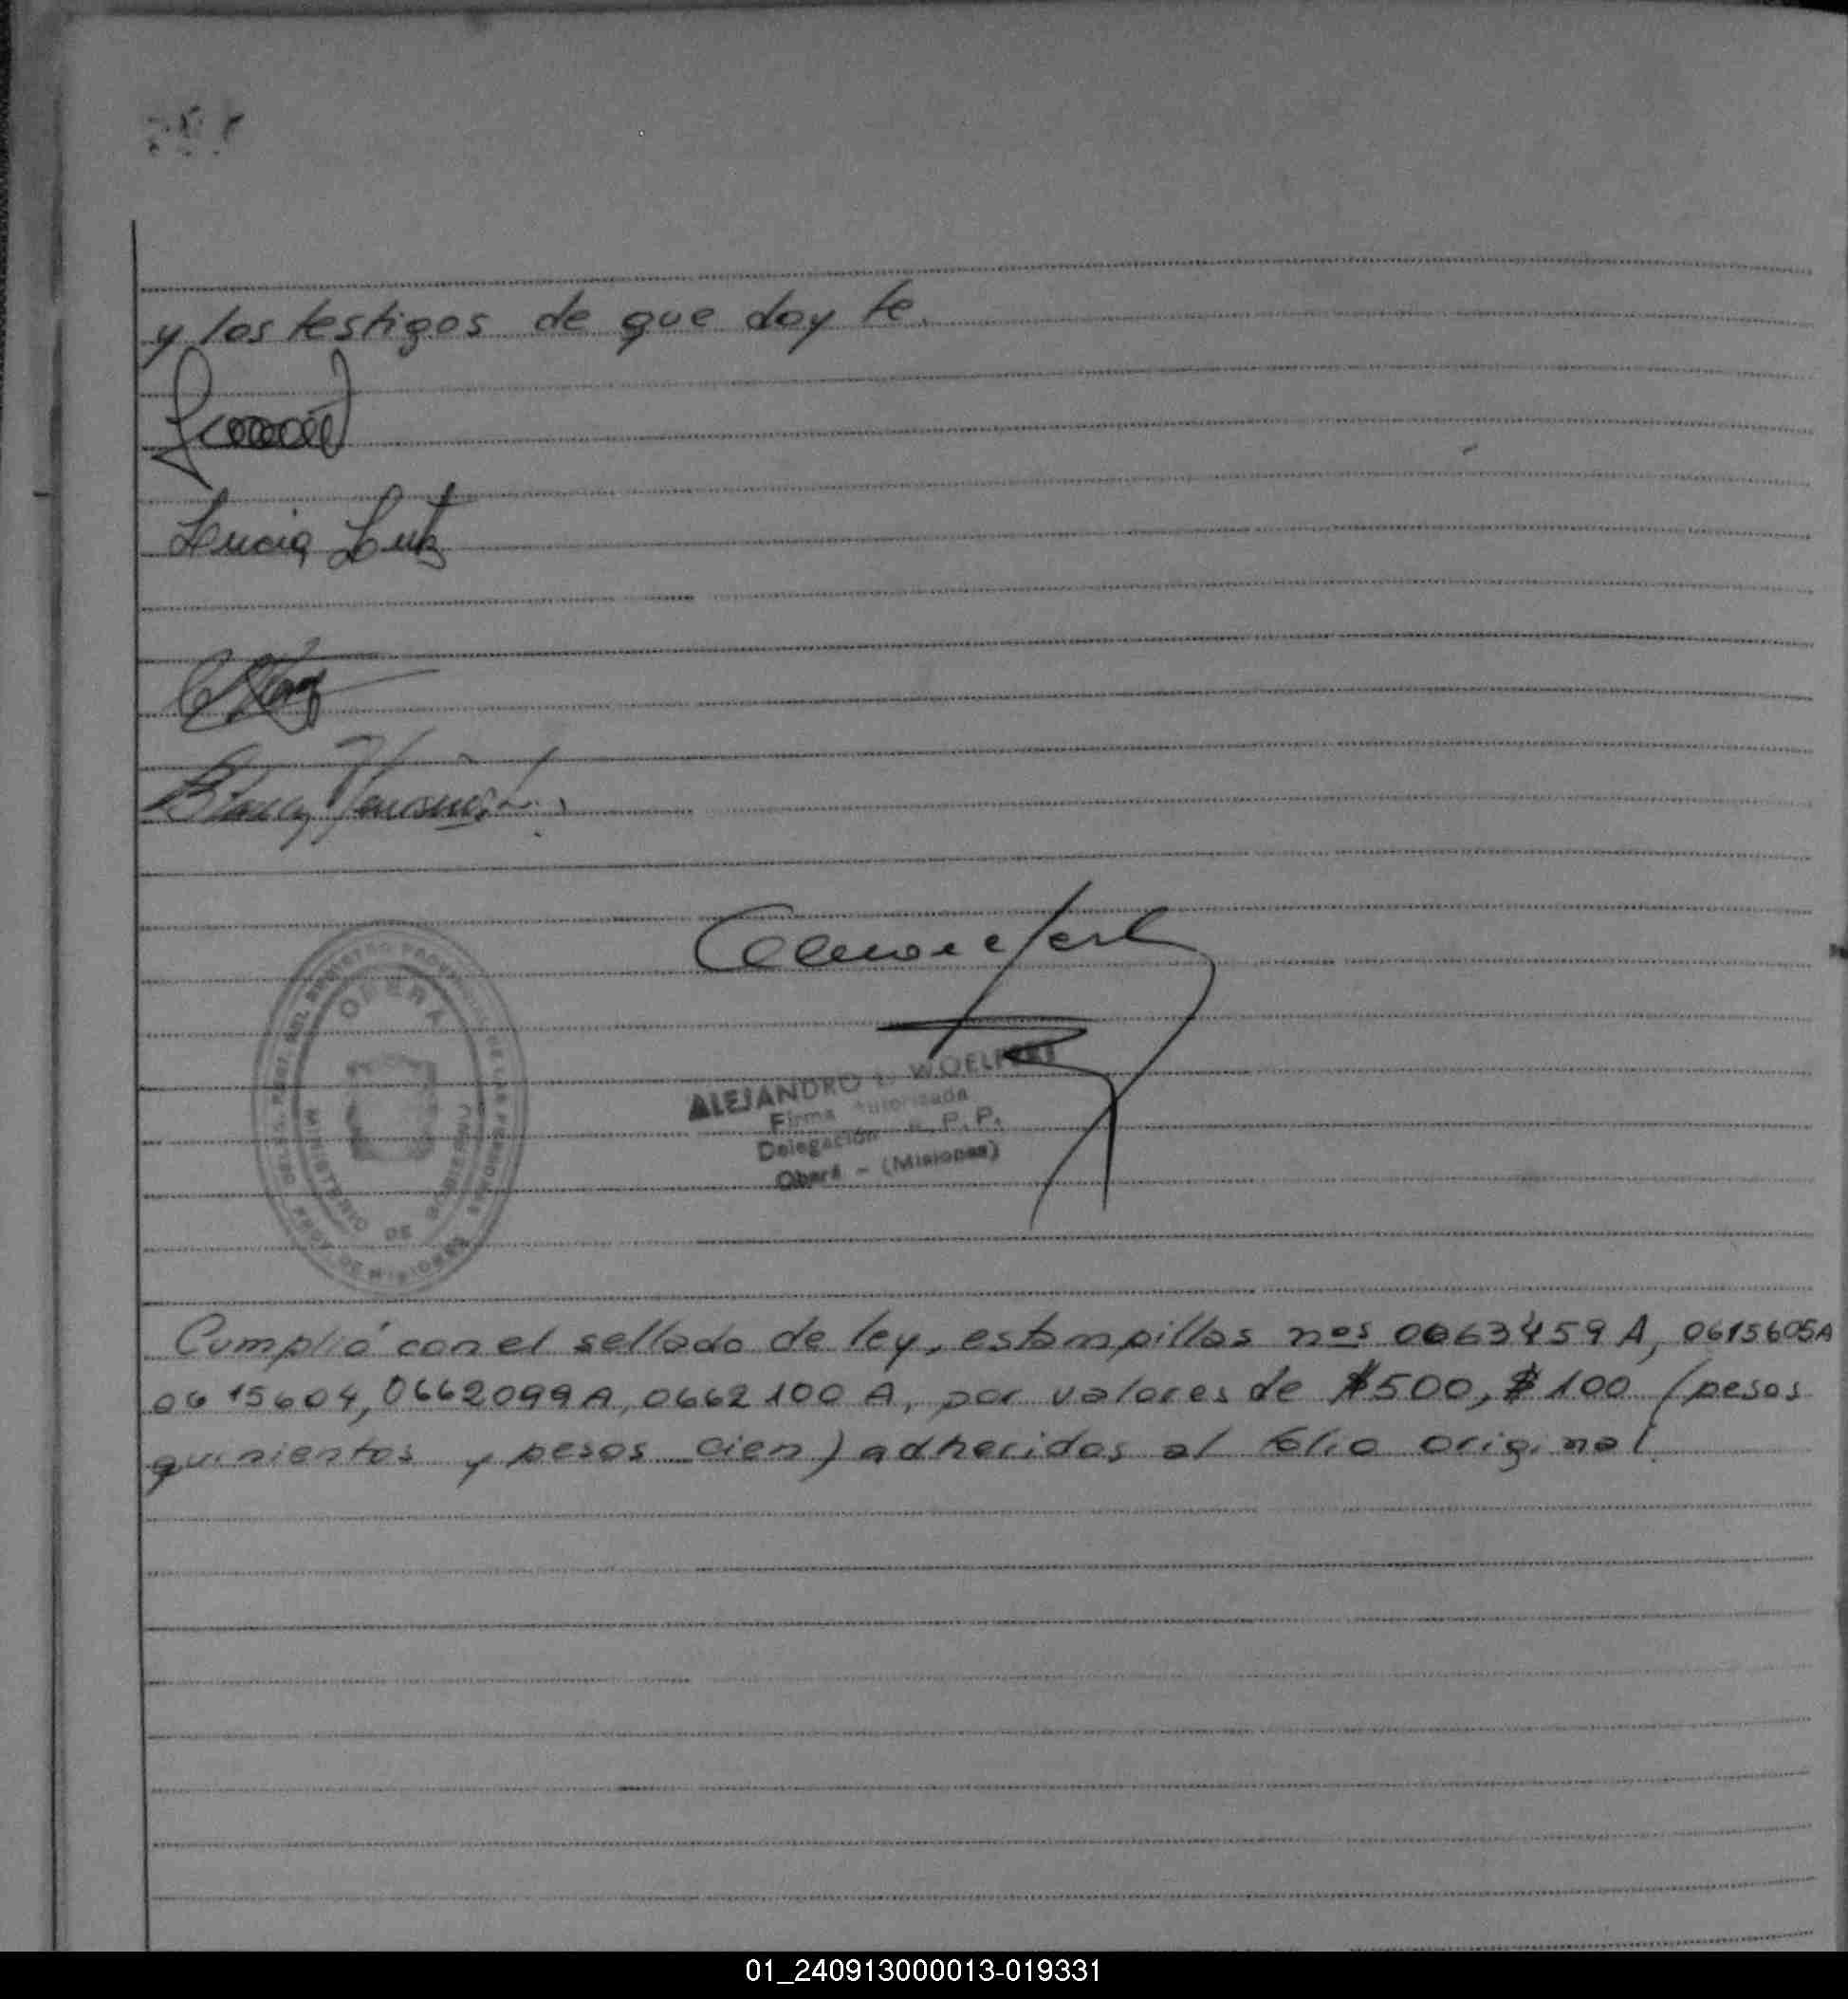 y los testigos de que doy fe.
Lucia Lutz
OBERA
MINISTERIO DE GOBIERNO
ALEJANDRO
Firma Autorizada
Delegación R. P. P.
Oberá - (Misiones)
Cumplió con el sellado de ley, estampillas nos 0063459 A, 0615605A
0615604, 0662099A, 0662100 A, por valores de $500, $100 (pesos
quinientos y pesos cien) adheridas al folio original.
01_240913000013-019331